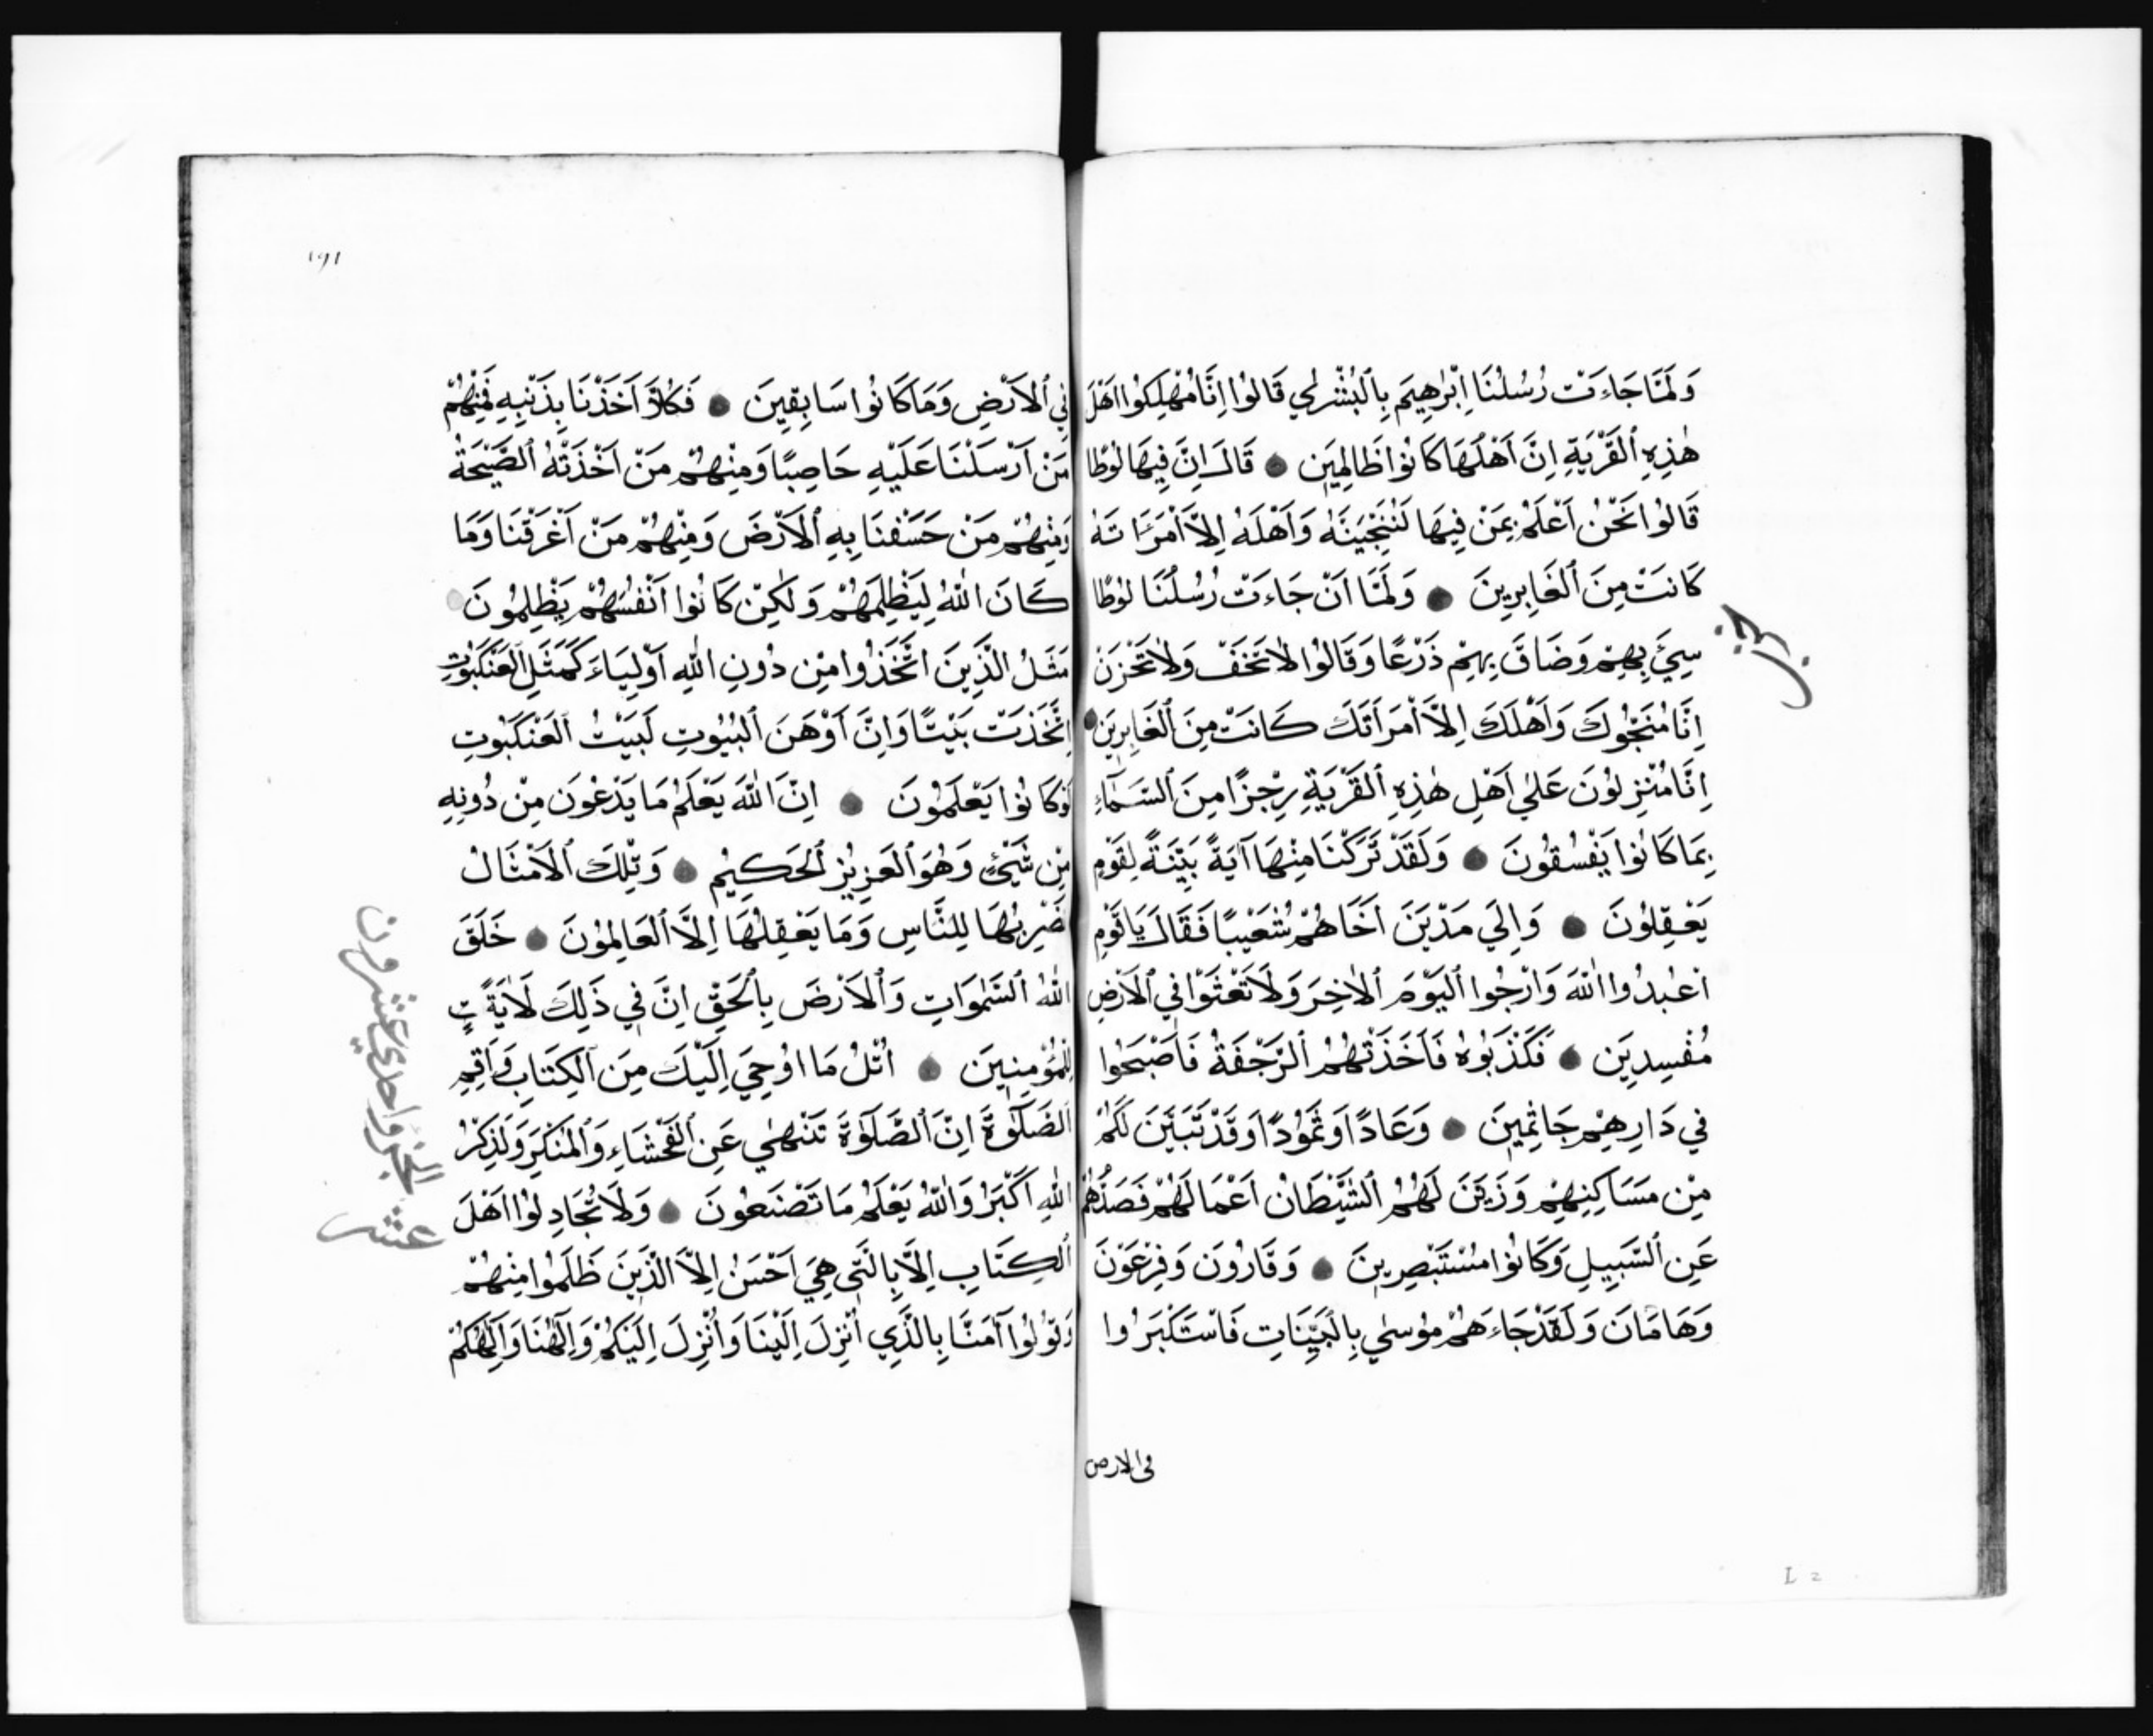 وَلَمَّا جَاءَتْ رُسُلُنَا اِبْرٰهِيمَ بِالْبُشْرٰي قَالُوا اِنَّا مُهْلِكُوا اَهْلَ
هٰذِهِ الْقَرْيَةِ اِنَّ اَهْلَهَا كَانُوا ظَالِمِينَ قَالَ اِنَّ فِيهَا لُوطًا
قَالُوا نَحْنُ اَعْلَمُ بِمَنْ فِيهَا لَنُنَجِّيَنَّهُ وَاَهْلَهُ اِلَّا امْرَاَتَهُ
كَانَتْ مِنَ الْغَابِرِينَ وَلَمَّا اَنْ جَاءَتْ رُسُلُنَا لُوطًا
سِئَ بِهِمْ وَضَاقَ بِهِمْ ذَرْعًا وَقَالُوا لَا تَخَفْ وَلَا تَحْزَنْ
اِنَّا مُنَجُّوكَ وَاَهْلَكَ اِلَّا امْرَاَتَكَ كَانَتْ مِنَ الْغَابِرِينَ
اِنَّا مُنْزِلُونَ عَلٰي اَهْلِ هٰذِهِ الْقَرْيَةِ رِجْزًا مِنَ السَّمَاءِ
بِمَا كَانُوا يَفْسُقُونَ وَلَقَدْ تَرَكْنَا مِنْهَا آيَةً بَيِّنَةً لِقَوْمٍ
يَعْقِلُونَ وَاِلَي مَدْيَنَ اَخَاهُمْ شُعَيْبًا فَقَالَ يَا قَوْمِ
اعْبُدُوا اللّٰهَ وَارْجُوا الْيَوْمَ الْاٰخِرَ وَلَا تَعْثَوْا فِي الْاَرْضِ
مُفْسِدِينَ فَكَذَّبُوهُ فَاَخَذَتْهُمُ الرَّجْفَةُ فَاَصْبَحُوا
فِي دَارِهِمْ جَاثِمِينَ وَعَادًا وَثَمُودًا وَقَدْ تَبَيَّنَ لَكُمْ
مِنْ مَسَاكِنِهِمْ وَزَيَّنَ لَهُمُ الشَّيْطَانُ اَعْمَالَهُمْ فَصَدَّهُمْ
عَنِ السَّبِيلِ وَكَانُوا مُسْتَبْصِرِينَ وَقَارُونَ وَفِرْعَوْنَ
وَهَامَانَ وَلَقَدْ جَاءَهُمْ مُوسٰي بِالْبَيِّنَاتِ فَاسْتَكْبَرُوا
فى الارض
حزب
L 2
١٩١
فِي الْاَرْضِ وَمَا كَانُوا سَابِقِينَ فَكُلًّا اَخَذْنَا بِذَنْبِهِ فَمِنْهُمْ
مَنْ اَرْسَلْنَا عَلَيْهِ حَاصِبًا وَمِنْهُمْ مَنْ اَخَذَتْهُ الصَّيْحَةُ
وَمِنْهُمْ مَنْ خَسَفْنَا بِهِ الْاَرْضَ وَمِنْهُمْ مَنْ اَغْرَقْنَا وَمَا
كَانَ اللّٰهُ لِيَظْلِمَهُمْ وَلٰكِنْ كَانُوا اَنْفُسَهُمْ يَظْلِمُونَ
مَثَلُ الَّذِينَ اتَّخَذُوا مِنْ دُونِ اللّٰهِ اَوْلِيَاءَ كَمَثَلِ الْعَنْكَبُوتِ
اِتَّخَذَتْ بَيْتًا وَاِنَّ اَوْهَنَ الْبُيُوتِ لَبَيْتُ الْعَنْكَبُوتِ
لَوْ كَانُوا يَعْلَمُونَ اِنَّ اللّٰهَ يَعْلَمُ مَا يَدْعُونَ مِنْ دُونِهِ
مِنْ شَيْئٍ وَهُوَ الْعَزِيزُ الْحَكِيمُ وَتِلْكَ الْاَمْثَالُ
نَضْرِبُهَا لِلنَّاسِ وَمَا يَعْقِلُهَا اِلَّا الْعَالِمُونَ خَلَقَ
اللّٰهُ السَّمٰوَاتِ وَالْاَرْضَ بِالْحَقِّ اِنَّ فِي ذَلِكَ لَاٰيَةً
لِلْمُؤْمِنِينَ اُتْلُ مَا اُوحِيَ اِلَيْكَ مِنَ الْكِتَابِ وَاَقِمِ
الصَّلٰوةَ اِنَّ الصَّلٰوةَ تَنْهٰي عَنِ الْفَحْشَاءِ وَالْمُنْكَرِ وَلَذِكْرُ
اللّٰهِ اَكْبَرُ وَاللّٰهُ يَعْلَمُ مَا تَصْنَعُونَ وَلَا تُجَادِلُوا اَهْلَ
الْكِتَابِ اِلَّا بِالَّتِي هِيَ اَحْسَنُ اِلَّا الَّذِينَ ظَلَمُوا مِنْهُمْ
وَقُولُوا آمَنَّا بِالَّذِي اُنْزِلَ اِلَيْنَا وَاُنْزِلَ اِلَيْكُمْ وَاِلٰهُنَا وَاِلٰهُكُمْ
الجزؤ احدي عشرون
عشر